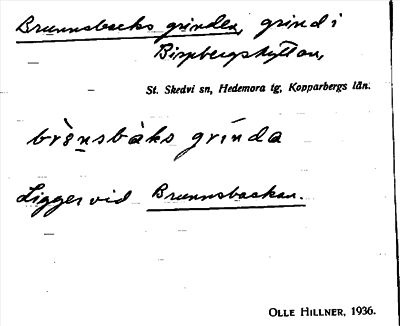 Brunnsbacks grinden, grind i
Bispbergshyttan,
St. Skedvi sn, Hedemora tg, Kopparbergs län.
brònsbàks grinda
Ligger vid Brunnsbackan.
OLLE HILLNER, 1936.